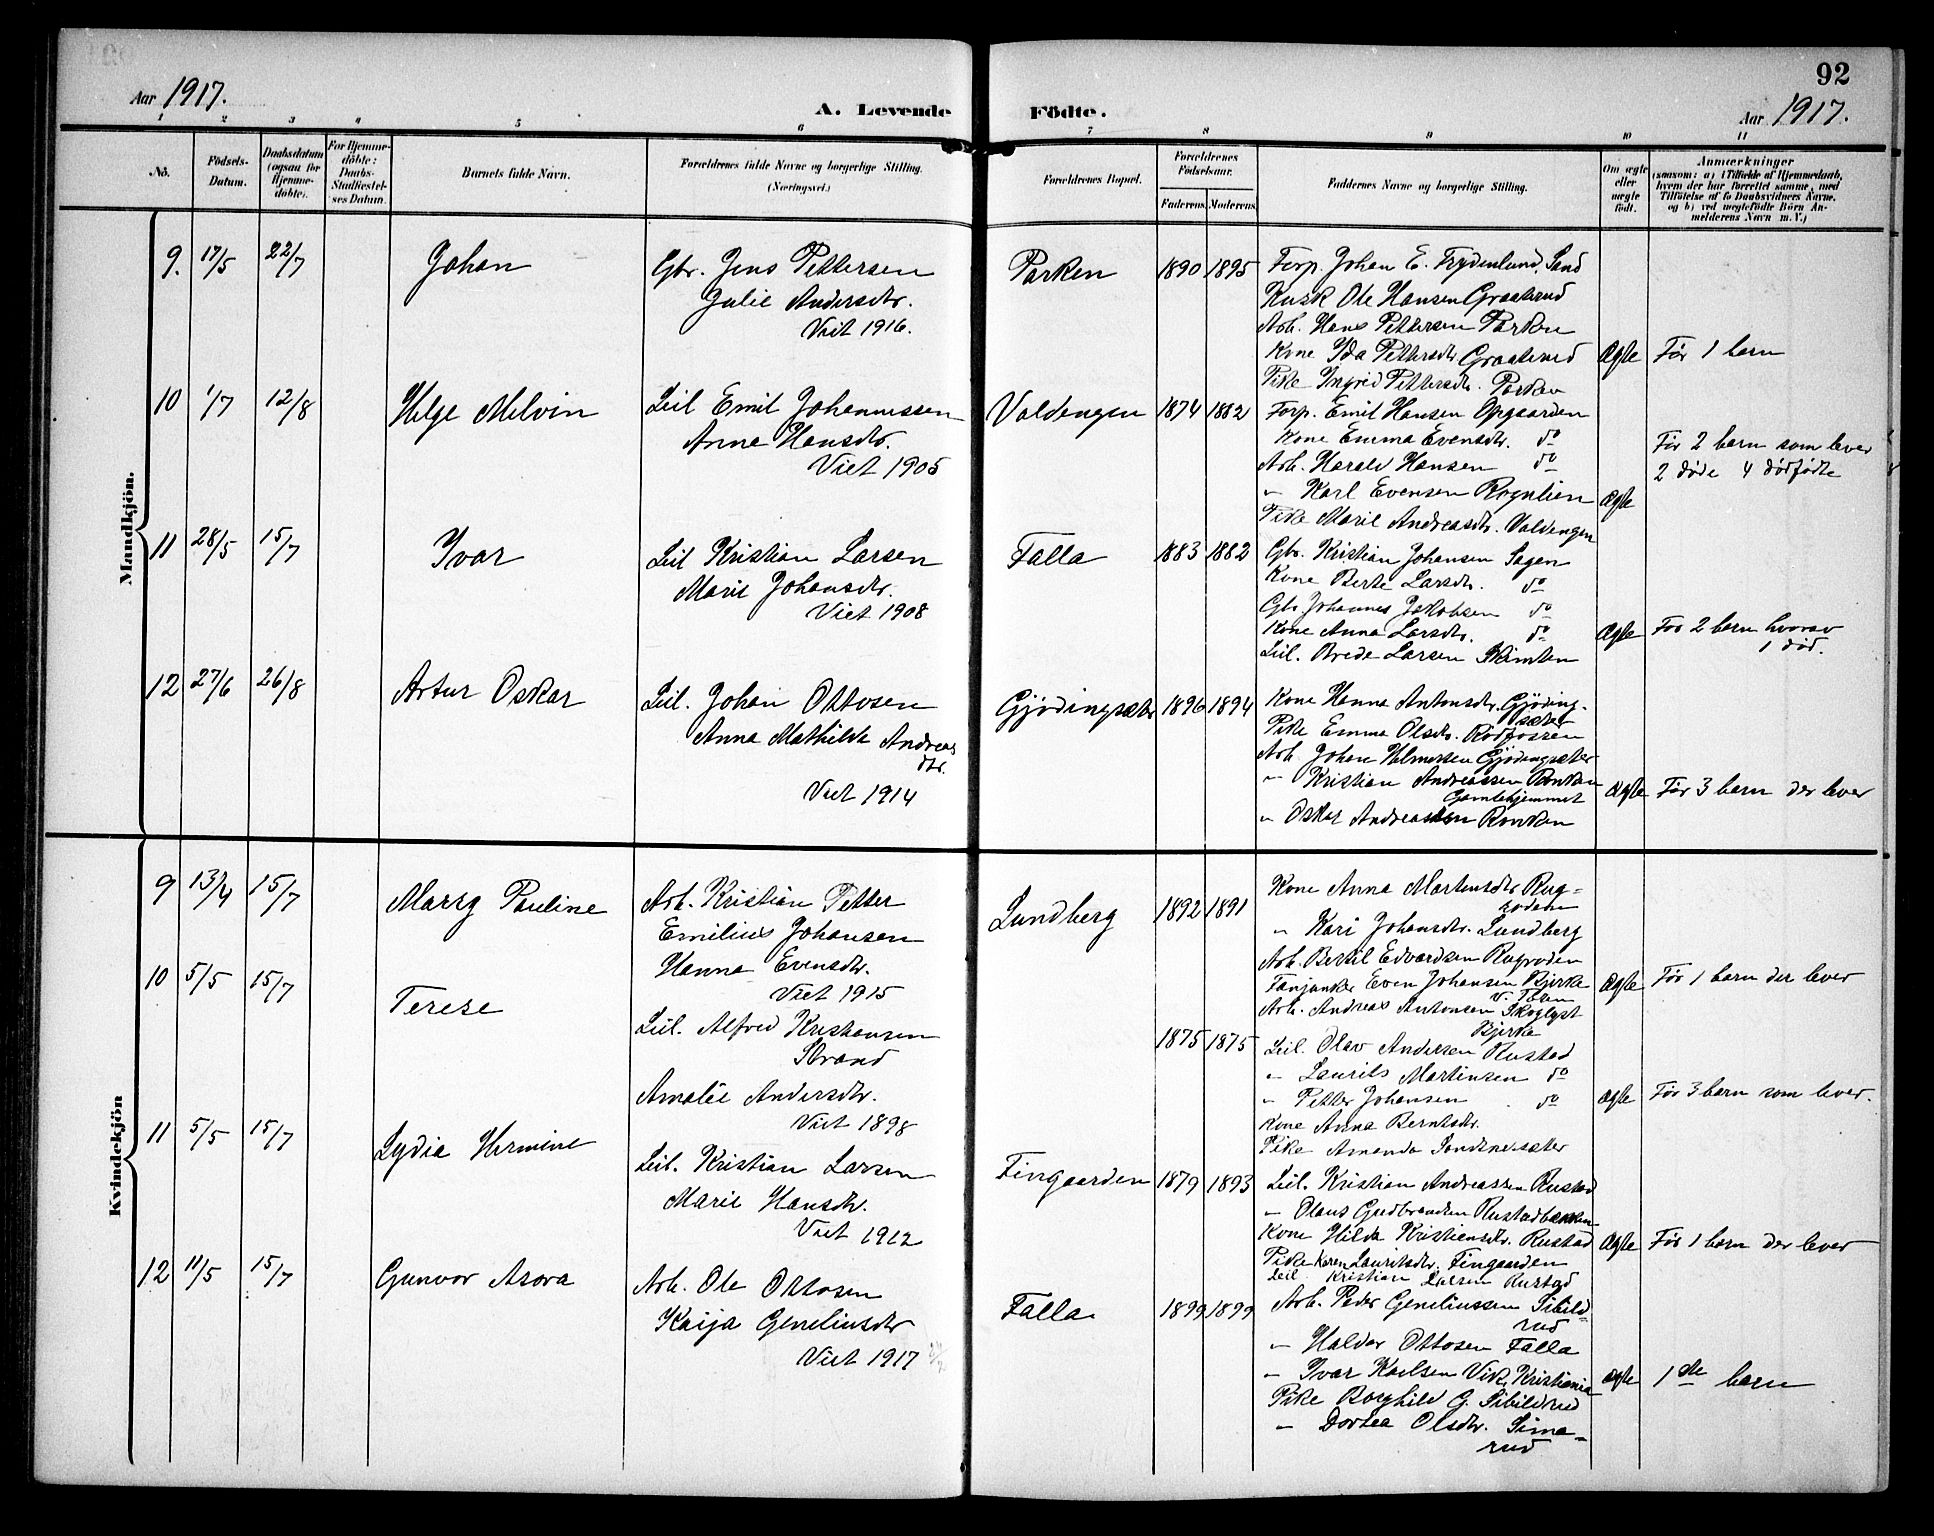 92
Aar 1917.
A. Levende Födte.
Aar 1917.
1 2 3 4 5 6 7 8 9 10 11
No.
Födsels-Datum.
Daabsdatum (ogsaa for Hjemmedöbte).
For Hjemmedöbte: Daabs-Stadfæstelses Datum.
Barnets fulde Navn.
Forældrenes fulde Navne og borgerlige Stilling. (Næringsvei.)
Forældrenes Bopæl.
Forældrenes Födselsaar.
Faderens. Moderens.
Faddernes Navne og borgerlige Stilling.
Om ægte eller uægte födt.
Anmærkninger
(saasom: a) i Tilfælde af Hjemmedaab,
hvem der har forrettet samme, med
Tilföielse af to Daabsvidners Navne.
og b) ved uægtefödte Börn An-
melderens Navn m. V.)
Mandkjön.
9. 17/5 22/7 Johan
Gbr. Jens Pettersen
Julie Andersdtr.
Viet 1916.
Parken 1890 1895
Forp. Johan E. Frydenlund, Sand
Kusk Ole Hansen Graaterud
Arb. Hans Pettersen Parken
Kone Ida Pettersdtr. Graaterud
Pike Ingrid Pettersdtr. Parken
Ægte Før 1 barn
10 1/7 12/8 Helge Melvin
Leil Emil Johannessen
Anna Hansdtr.
Viet 1905
Valdengen 1874 1882
Forp. Emil Hansen Opgaarden
Kone Emma Evensdtr. do
Arb. Harald Hansen do
" Karl Evensen Rognlien
Pike Marie Andreasdtr. Valdengen
Ægte
Før 2 barn som lever
2 døde 4 dødfødte
11 28/5 15/7 Ivar
Leil Kristian Larsen
Marie Johansdtr.
Viet 1908
Falla 1883 1882
Gbr. Kristian Johansen Sagen
Kone Berte Larsdtr. do
Gbr. Johannes Jakobsen do
Kone Anna Larsdtr. do
Leil. Brede Larsen
Ægte
Før 2 barn hvorav
1 død.
12 27/6 26/8 Artur Oskar
Leil. Johan Ottosen
Anna Mathilde Andreas
dtr.
Viet 1914
Gjødingsæter 1896 1894
Kone Hanna Antonsdtr. Gjøding-
sæter
Pike Emma Olsdtr. Rødfossen
Arb Johan Helmersen Gjødingsæter
" Kristian Andreassen Ronken
Gamlehjemmet
" Oskar Andreassen Ronken
Ægte Før 3 barn der lever
Kvindekjön
9 13/4 15/7 Marry Pauline
Arb. Kristian Petter
Emilius Johansen
Hanna Evensdtr.
Viet 1915
Lundberg 1892 1891
Kone Anna Martinsdtr Rug-
roden
" Kari Johansdtr. Lundberg
Arb. Bertil Edvardsen Rugroden
Fanjunker Even Johansen Bjerke
V. Toten
Arb. Andreas Antonsen Skoglyst
Bjerke
Ægte Før 1 barn der lever
10 5/5 15/7 Terese
Leil. Alfred Kristiansen
Strand
Amalie Andersdtr.
Viet 1898
1875 1875
Leil. Olav Andersen Rustad
" Laurits Martinsen do
" Petter Johansen do
Kone Anna Berntsdtr.
Pike Amanda
Ægte Før 3 barn som lever.
11 5/5 15/7 Lydia Hermine
Leil. Kristian Larsen
Marie Hansdtr.
Viet 1912
Fingaarden 1879 1893
Leil. Kristian Andreassen Rustad
" Olaus Gudbrandsen Rustadbakken
Kone Hilda Kristiansdtr. Rustad
Pike Karen Lauritsdtr. Fingaarden
Leil Kristian Larsen Rustad
Ægte Før 1 barn der lever
12 11/5 15/7 Gunvor Asora
Arb. Ole Ottosen
Kaija Geneliusdtr
Viet 1917
Falla 1899 1899
Arb. Peder Geneliussen Sibild-
rud
" Haldor Ottosen Falla
" Ivar Karlsen Vik, Kristiania
Pike Borghild G. Sibildrud
" Dortea Olsdtr. Sima-
rud
Ægte 1ste barn